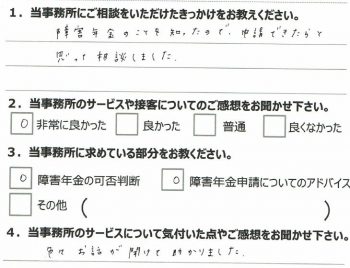 1．当事務所にご相談をいただけたきっかけをお教えください。
障害年金のことを知ったので、申請できたらと
思って相談しました。
2．当事務所のサービスや接客についてのご感想をお聞かせ下さい。
○ 非常に良かった □ 良かった □ 普通 □ 良くなかった
3．当事務所に求めている部分をお教ください。
○ 障害年金の可否判断 ○ 障害年金申請についてのアドバイス
□ その他 ( )
4．当事務所のサービスについて気付いた点やご感想をお聞かせ下さい。
色々お話が聞けて助かりました。